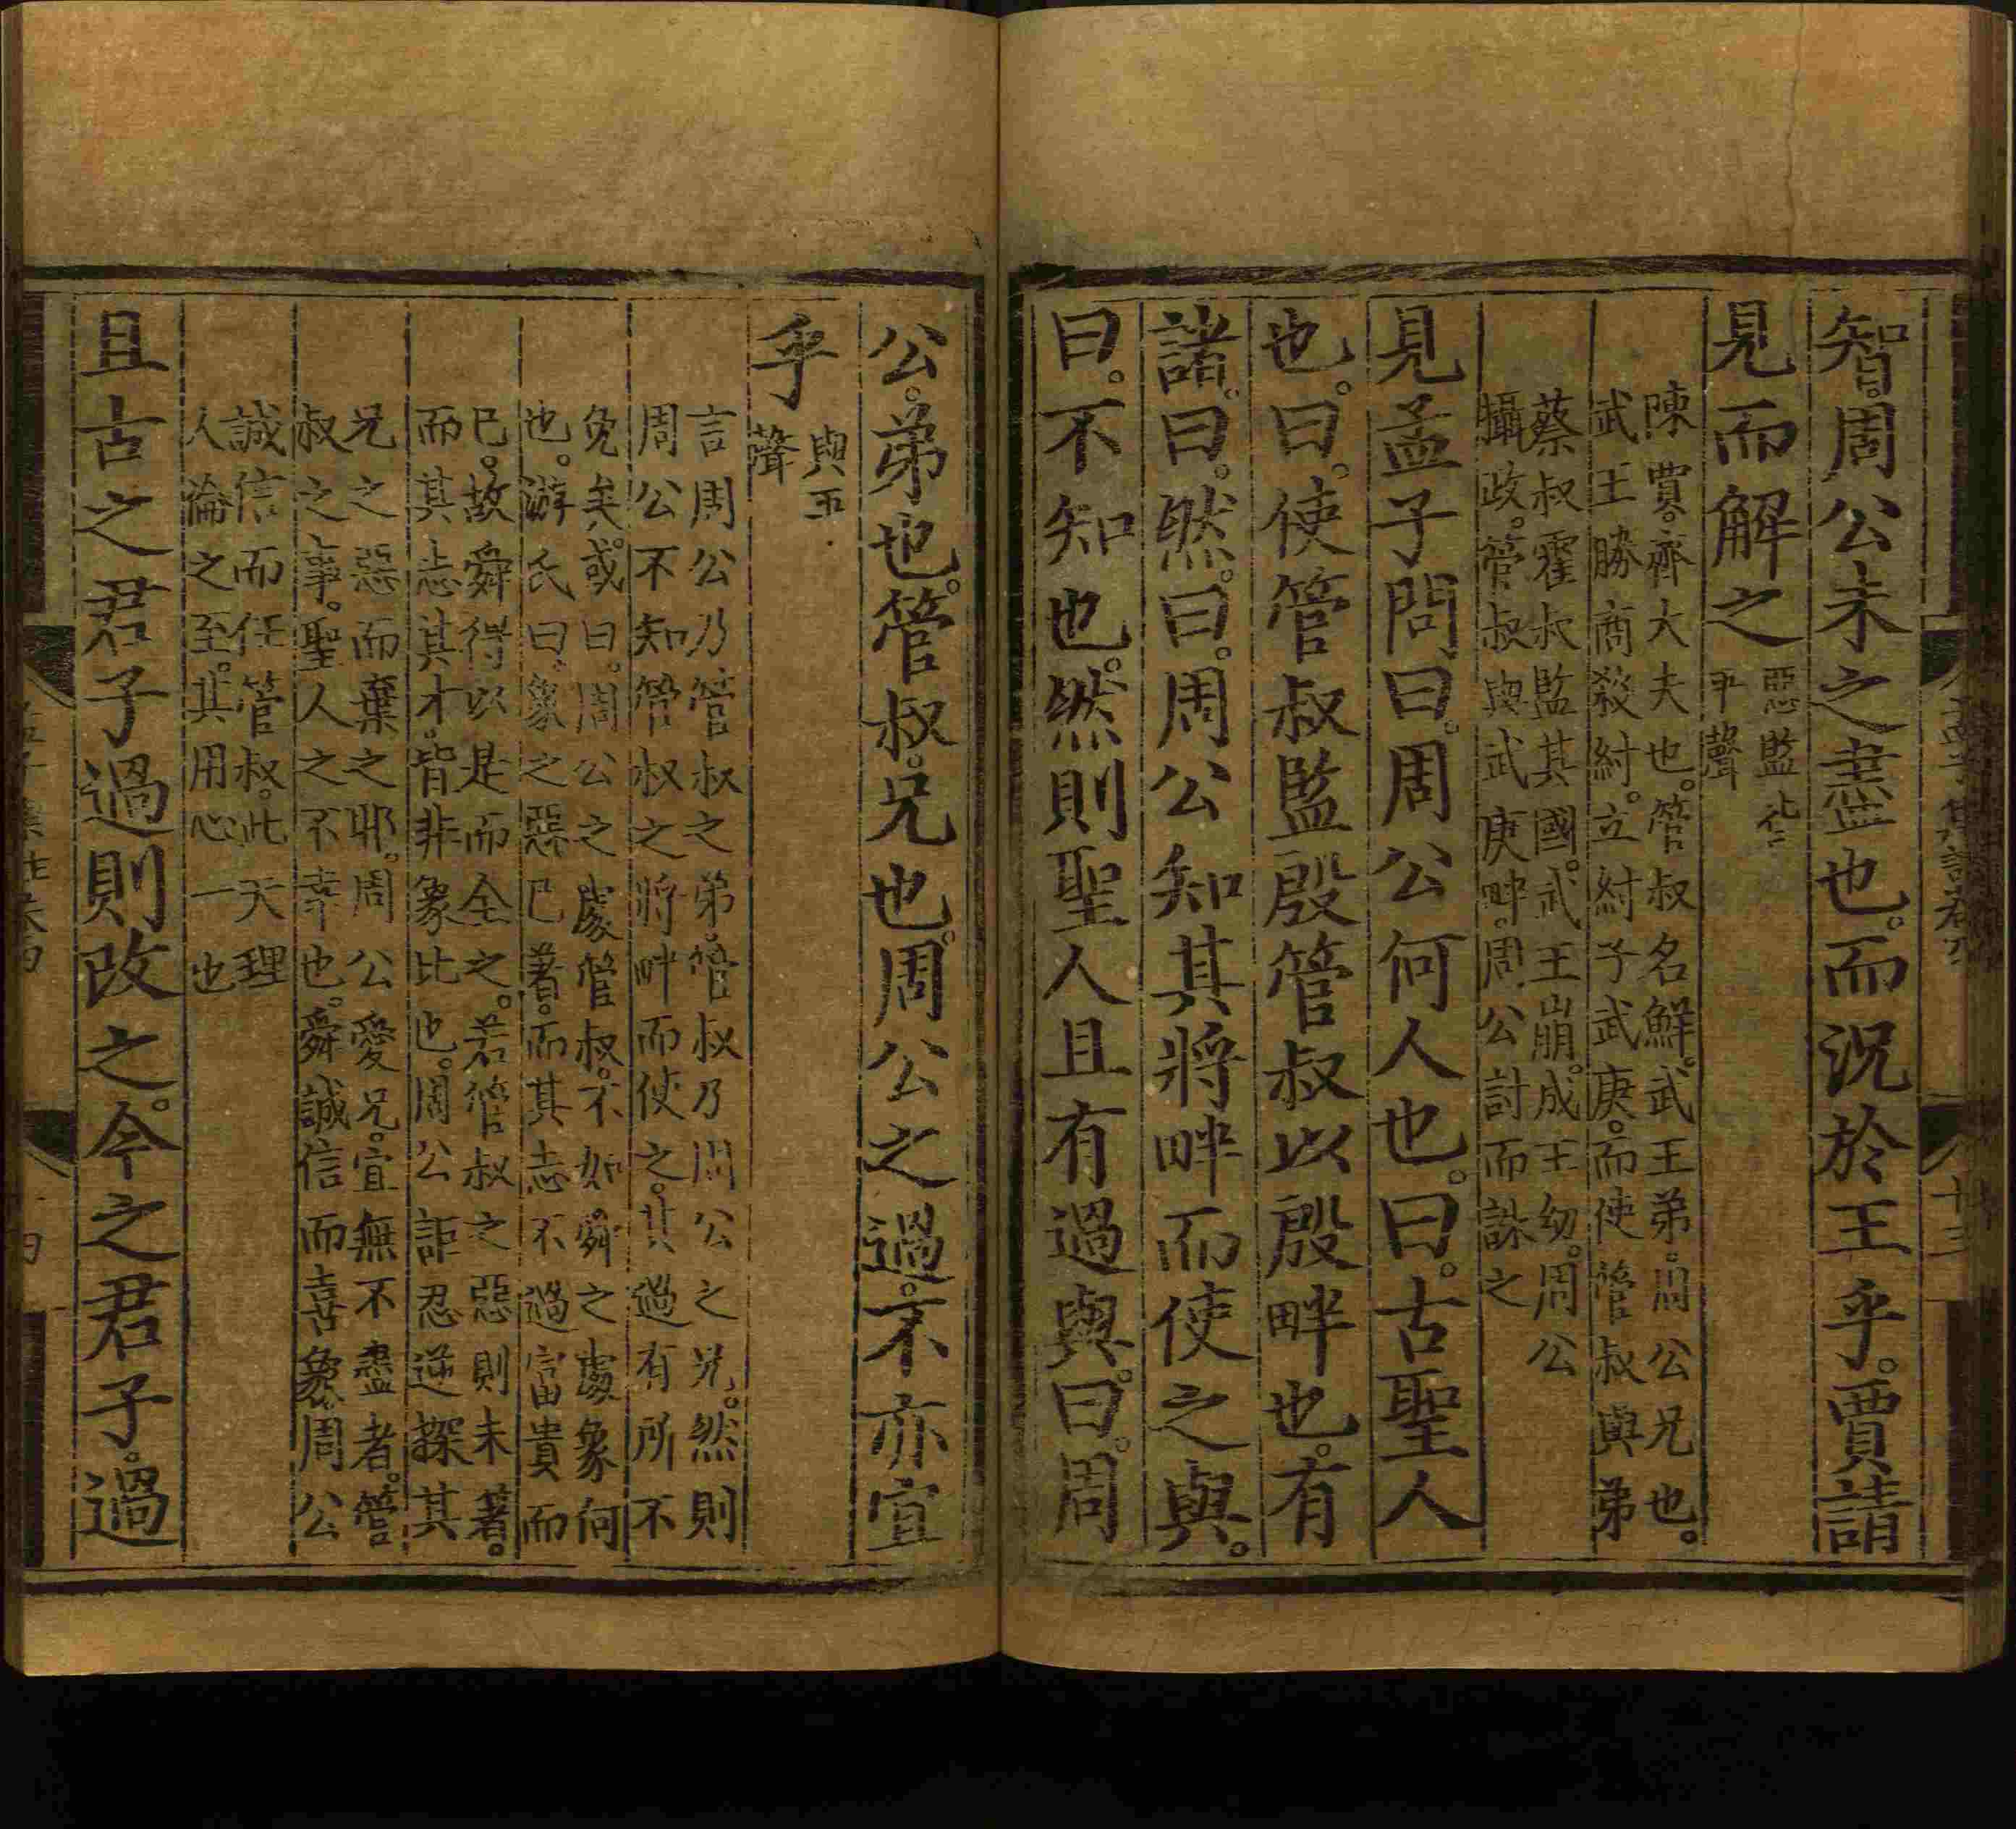 智。周公未之盡也。而況於王乎。賈請
見而解之
惡監皆
平聲
陳賈。齊大夫也。管叔名鮮。武王弟。周公兄也。
武王勝商殺紂。立紂子武庚。而使管叔與弟
蔡叔霍叔監其國。武王崩。成王幼。周公
攝政。管叔與武庚畔。周公討而誅之
見孟子問曰。周公何人也。曰。古聖人
也。曰。使管叔監殷管叔以殷畔也。有
諸。曰。然。曰。周公知其將畔而使之與。
曰。不知也。然則聖人且有過與。曰。周
公。弟也。管叔。兄也。周公之過。不亦宜
乎
與平
聲
言周公乃管叔之弟。管叔乃周公之兄。然則
周公不知管叔之將畔而使之。其過有所不
免矣。或曰。周公之處管叔。不如舜之處象何
也。游氏曰。象之惡已著。而其志不過富貴而
已。故舜得以是而全之。若管叔之惡則未著。
而其志其才。皆非象比也。周公詎忍逆探其
兄之惡而棄之耶。周公愛兄。宜無不盡者。管
叔之事。聖人之不幸也。舜誠信而喜象周公
誠信而任管叔。此天理
人倫之至。其用心一也
且古之君子過則改之。今之君子。過